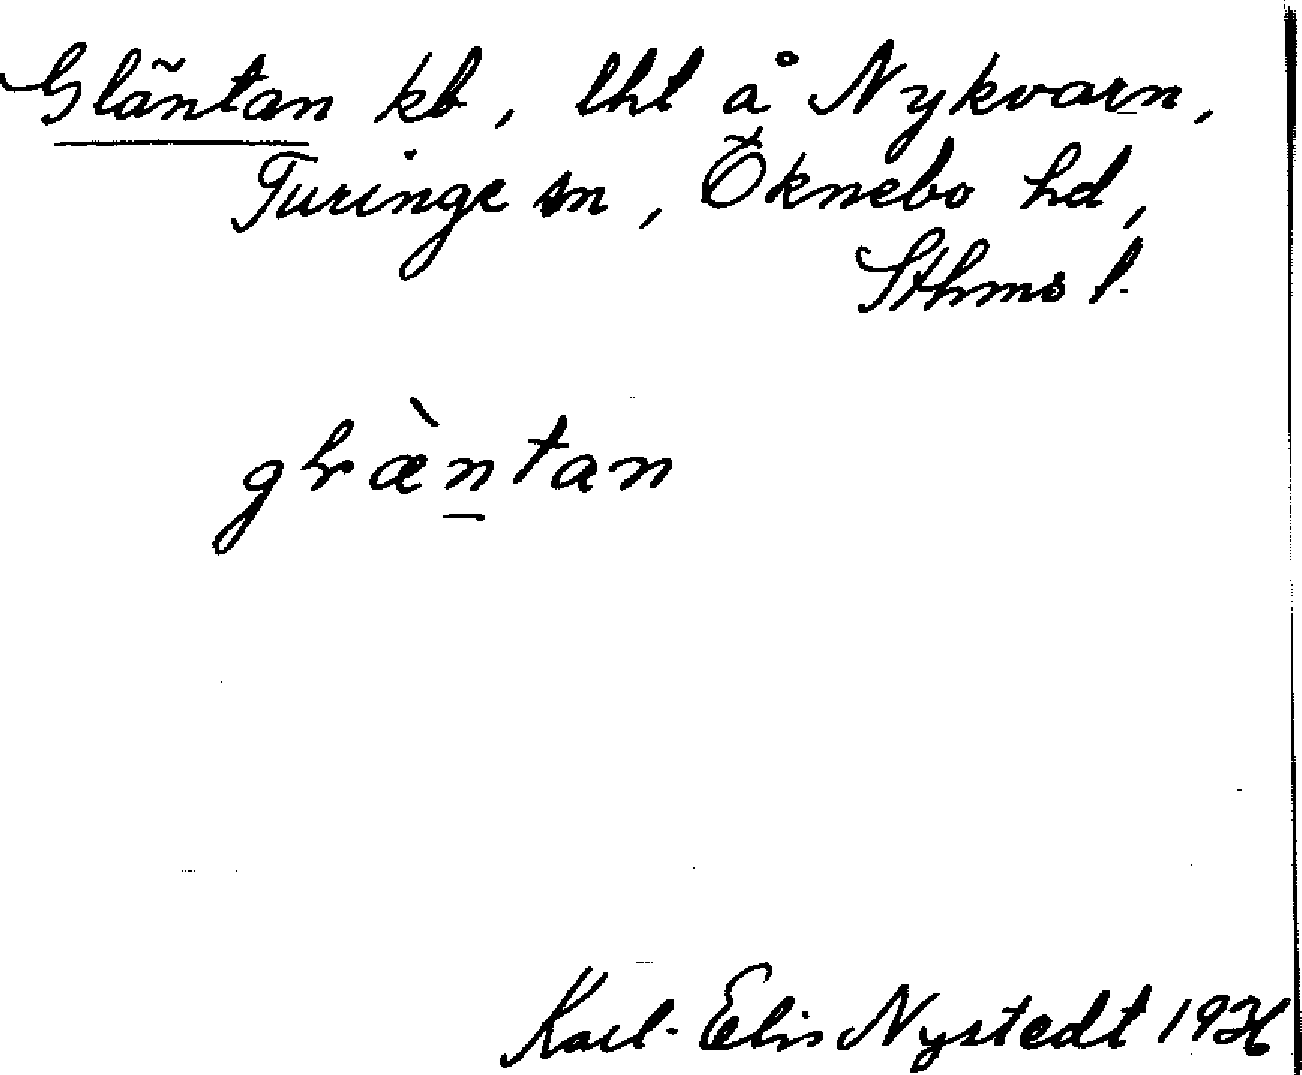 Gläntan kb, lht å Nykvarn,
Turinge sn, Öknebo hd,
Sthms l.
glæ̀ntan
Karl-Elis Nystedt 1936